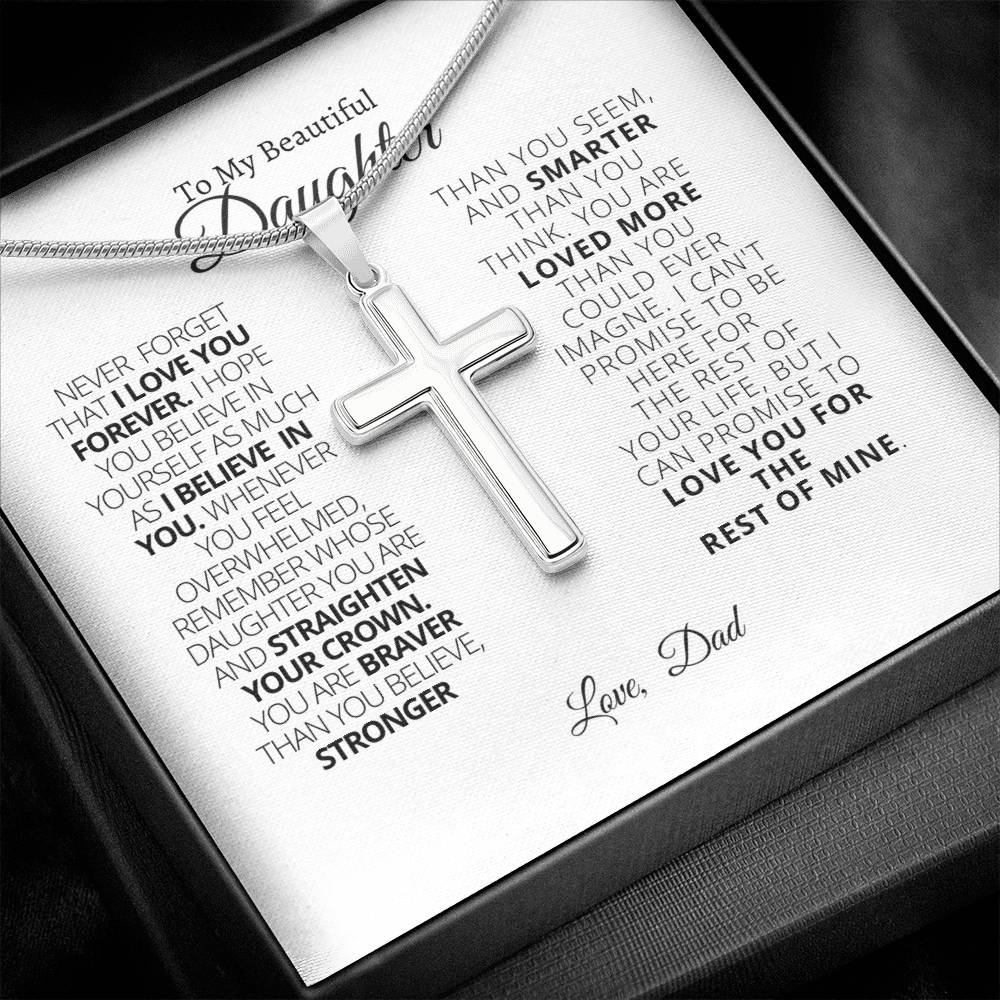 To My Beautiful
Daughter
NEVER FORGET
THAT I LOVE YOU
FOREVER. I HOPE
YOU BELIEVE IN
YOURSELF AS MUCH
AS I BELIEVE IN
YOU. WHENEVER
YOU FEEL
OVERWHELMED,
REMEMBER WHOSE
DAUGHTER YOU ARE
AND STRAIGHTEN
YOUR CROWN.
YOU ARE BRAVER
THAN YOU BELIEVE,
STRONGER
THAN YOU SEEM,
AND SMARTER
THAN YOU
THINK. YOU ARE
LOVED MORE
THAN YOU
COULD EVER
IMAGNE. I CAN'T
PROMISE TO BE
HERE FOR
THE REST OF
YOUR LIFE, BUT I
CAN PROMISE TO
LOVE YOU FOR
THE
REST OF MINE.
Love, Dad